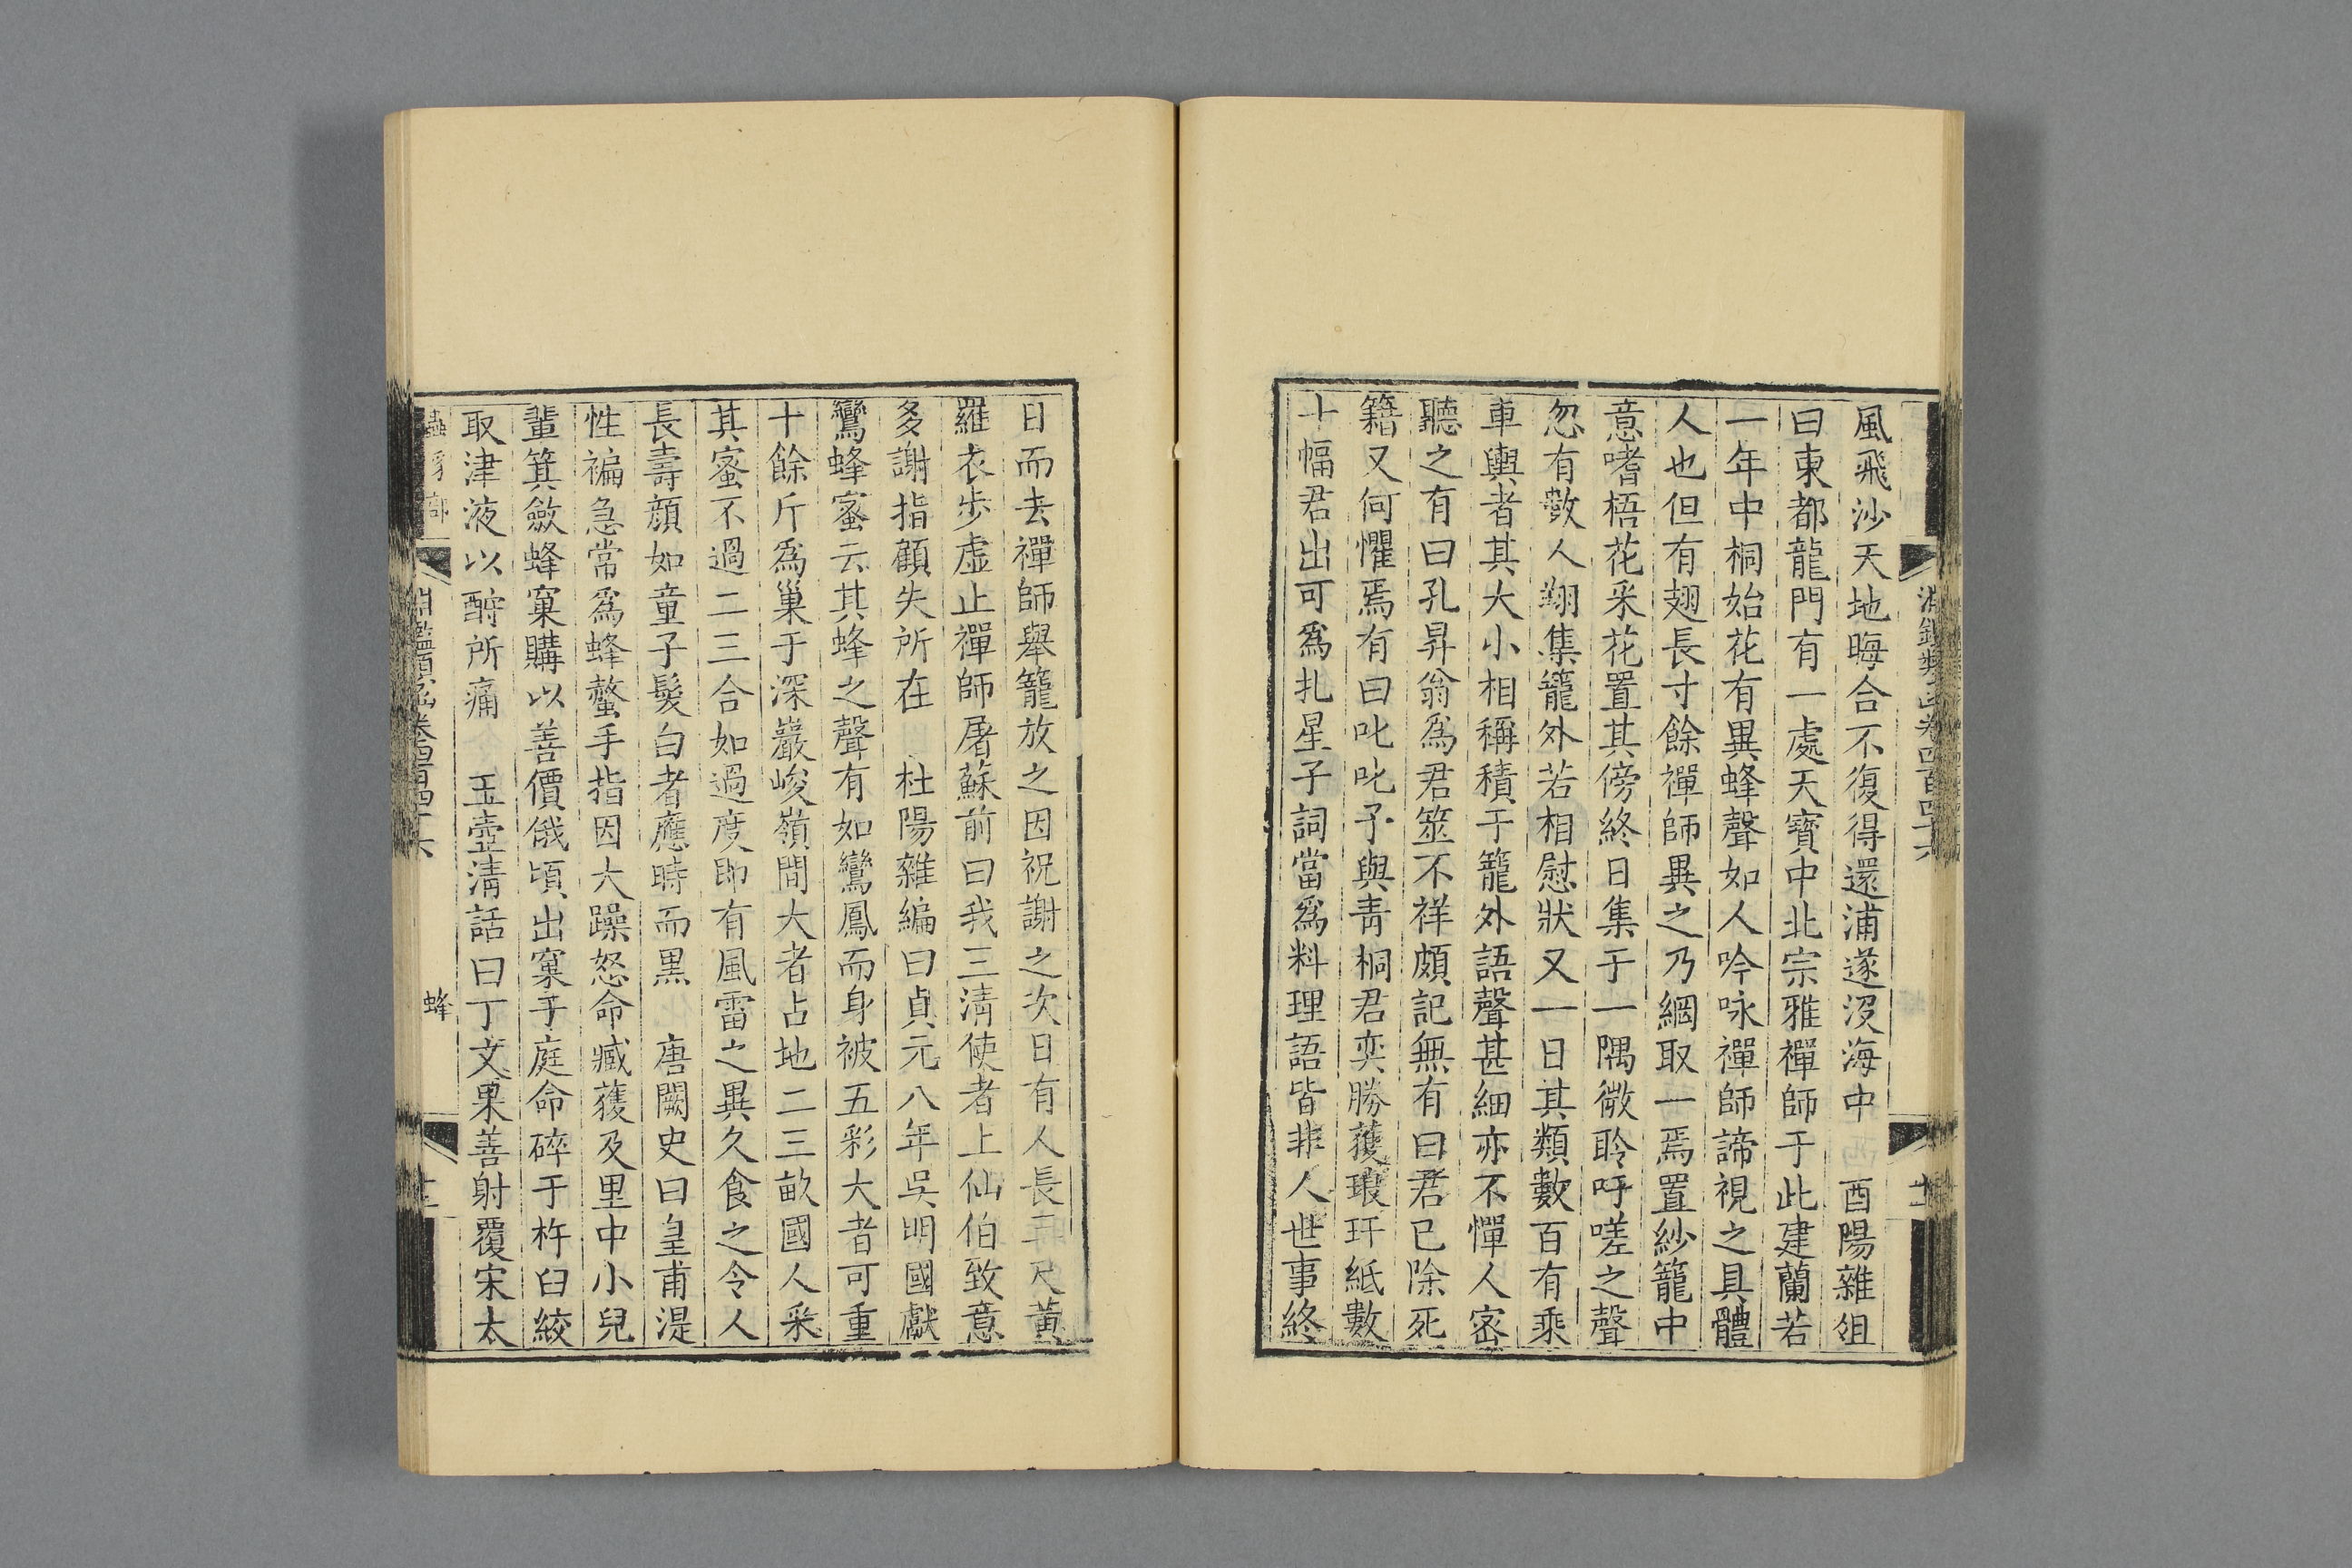 風飛沙天地晦合不復得還浦遂沒海中　酉陽雜俎
曰東都龍門有一處天寶中北宗雅禪師于此建蘭若
一年中桐始花有異蜂聲如人吟咏禪師諦視之具體
人也但有翅長寸餘禪師異之乃網取一焉置紗籠中
意嗜梧花采花置其傍終日集于一隅微聆吁嗟之聲
忽有數人翔集籠外若相慰狀又一日其類數百有乘
車輿者其大小相稱積于籠外語聲甚細亦不憚人密
聽之有曰孔昇翁爲君筮不祥頗記無有曰君已除死
籍又何懼焉有曰叱叱予與青桐君奕勝獲琅玕紙數
十幅君出可爲扎星子詞當爲料理語皆非人世事終
日而去禪師舉籠放之因祝謝之次日有人長三尺黃
羅衣步虛止禪師屠蘇前曰我三清使者上仙伯致意
多謝指顧失所在　杜陽雜編曰貞元八年吳明國獻
鸞蜂蜜云其蜂之聲有如鸞鳳而身被五彩大者可重
十餘斤爲巢于深巖峻嶺間大者占地二三畝國人采
其蜜不過二三合如過度即有風雷之異久食之令人
長壽顏如童子髮白者應時而黑　唐闕史曰皇甫湜
性褊急常爲蜂螫手指因大躁怒命臧獲及里中小兒
輩箕斂蜂窠購以善價俄頃出窠于庭命碎于杵臼絞
取津液以酧所痛　玉壺清話曰丁文果善射覆宋太
淵鑑類函卷四百四十六
蜂